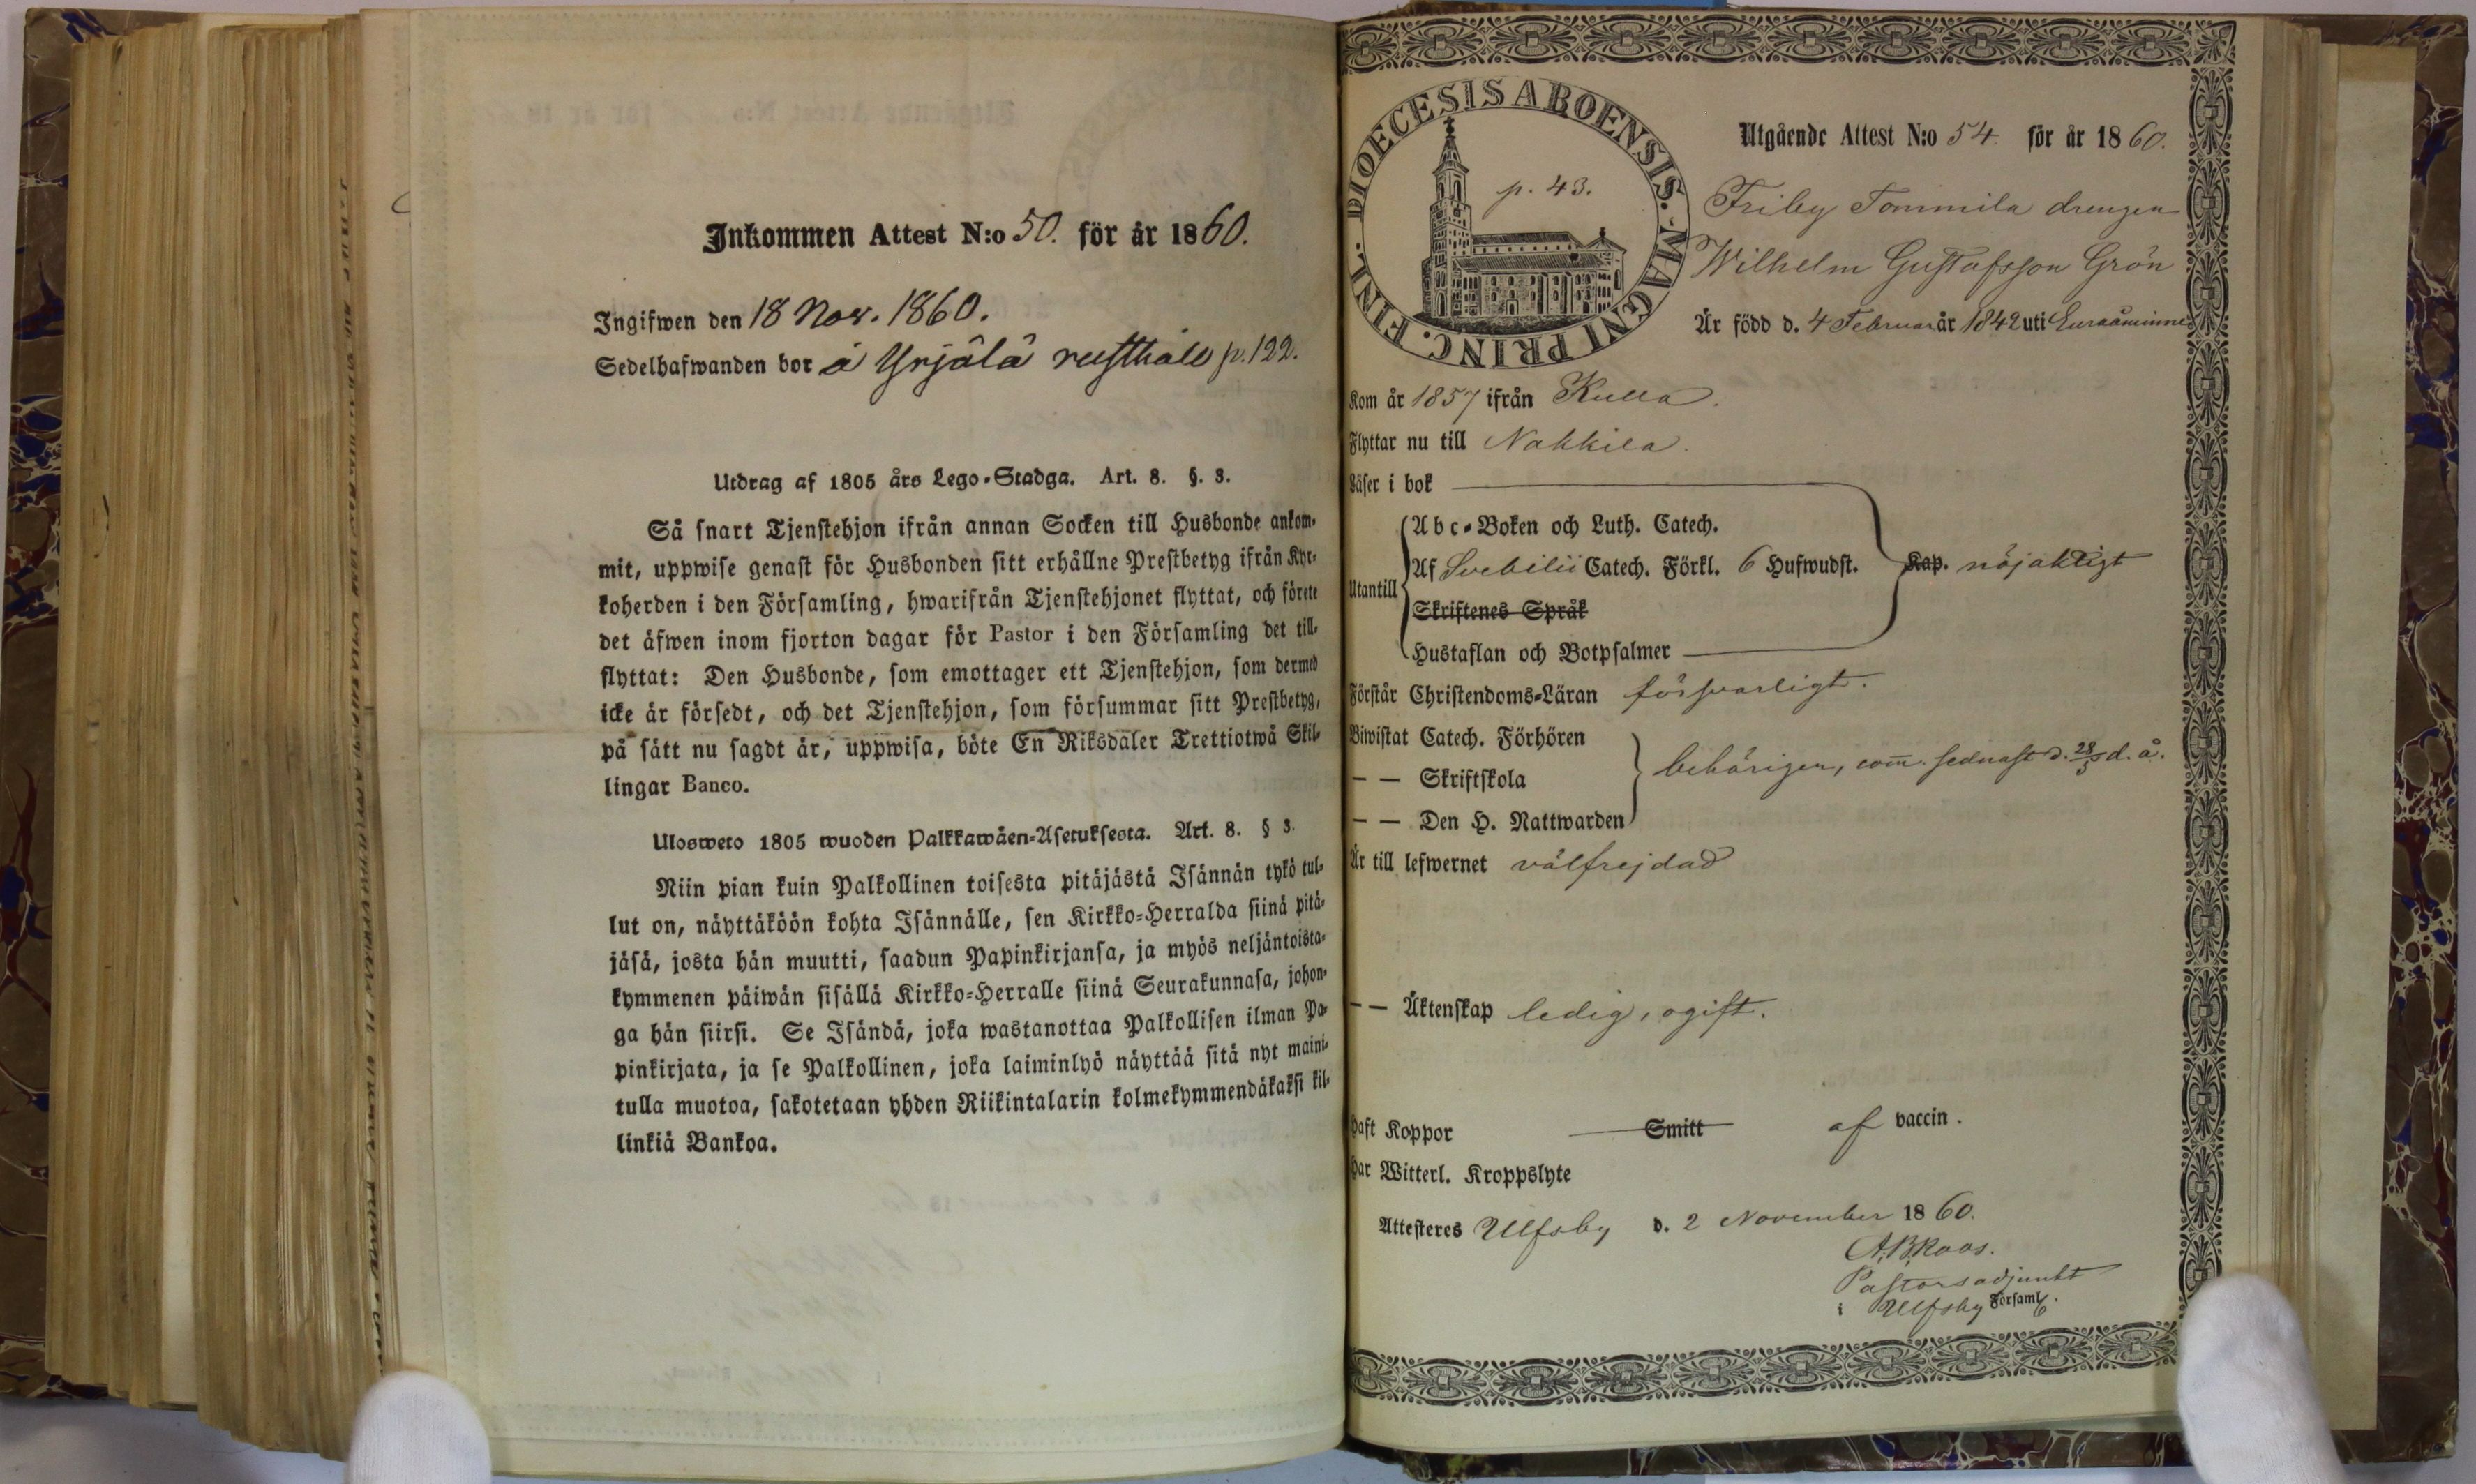 Inkommen Attest N:o 50. för år 1860.
Ingifwen den 18 Nov. 1860.
Sedelhafwanden bor å Yrjälä rusthåll p. 122.
Utdrag af 1805 års Lego-Stadga. Art. 8. §. 3.
Så snart Tjenstehjon ifrån annan Socken till Husbonde ankom-
mit, uppwise genast för Husbonden sitt erhållne Prestbetyg ifrån Kyr-
koherden i den Församling, hwarifrån Tjenstehjonet flyttat, och förete
det äfwen inom fjorton dagar för Pastor i den Församling det till-
flyttat: Den Husbonde, som emottager ett Tjenstehjon, som dermed
icke är försedt, och det Tjenstehjon, som försummar sitt Prestbetyg,
på sätt nu sagdt är, uppwisa, böte En Riksdaler Trettiotwå Skil-
lingar Banco.
Ulosweto 1805 wuoden Palkkawäen-Asetuksesta. Art. 8. § 3.
Niin pian kuin Palkollinen toisesta pitäjästä Isännän tykö tul-
lut on, näyttäköön kohta Isännälle, sen Kirkko-Herralda siinä pitä-
jäsä, josta hän muutti, saadun Papinkirjansa, ja myös neljäntoista-
kymmenen päiwän sisällä Kirkko-Herralle siinä Seurakunnasa, johon-
ga hän siirsi. Se Isändä, joka wastanottaa Palkollisen ilman Pa-
pinkirjata, ja se Palkollinen, joka laiminlyö näyttää sitä nyt maini-
tulla muotoa, sakotetaan yhden Riikintalarin kolmekymmendäkaksi kil-
linkiä Bankoa.
DIOECESIS ABOENSIS. MAGNI PRINC. FINL.
p. 43.
Utgående Attest N:o 54. för år 1860.
Friby Tommila drengen
Wilhelm Gustafsson Grön
Är född d. 4 Februar år 1842 uti Euraåminne
Kom år 1857 ifrån Kulla.
Flyttar nu till Nakkila.
Läser i bok
Utantill
Abc-Boken och Luth. Catech.
Af Svebilii Catech. Förkl. 6 Hufwudst. Kap. nöjaktigt
Skriftenes Språk
Hustaflan och Botpsalmer
Förstår Christendoms-Läran försvarligt.
Biwistat Catech. Förhören
— — Skriftskola
— — Den H. Nattwarden
behörigen, com. sednast d. 28/5 d. å.
Är till lefwernet välfrejdad
— — Äktenskap ledig, ogift.
Haft Koppor Smitt af vaccin.
Har Witterl. Kroppslyte
Attesteres Ulfsby d. 2 November 1860.
A. B. Roos.
Pastorsadjunkt
i Ulfsby Församl.